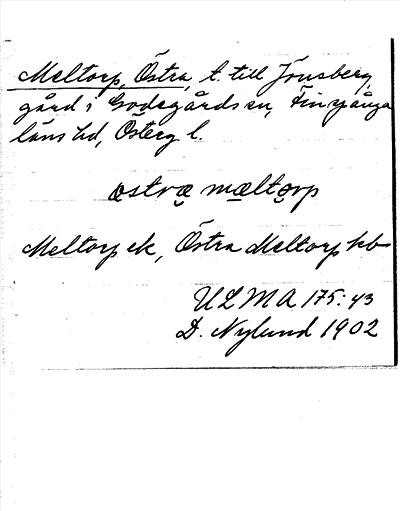 Meltorp, Östra, t. till Jonsberg,
gård i Godegårds sn, Finspånga
läns hd, Österg l.
östræ mæltorp
Meltorp ek, Östra Meltorp kb
ULMA 175:43
D. Nylund 1902